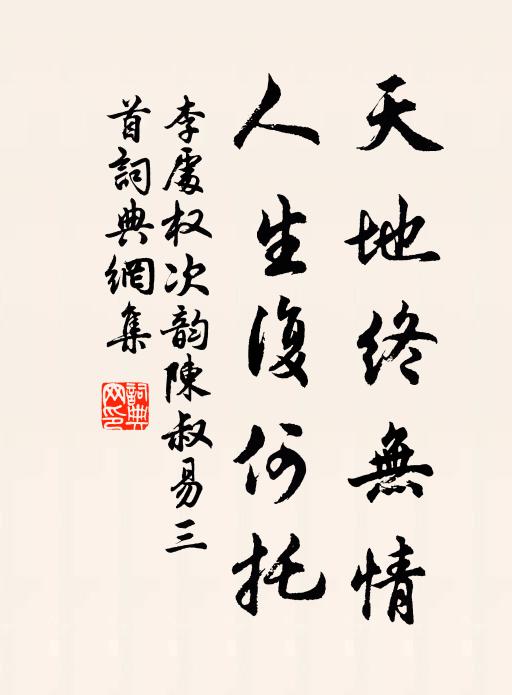 天地終無情
人生復何托
李處权次韵陳叔易三
首詞典網集
詞典
网印